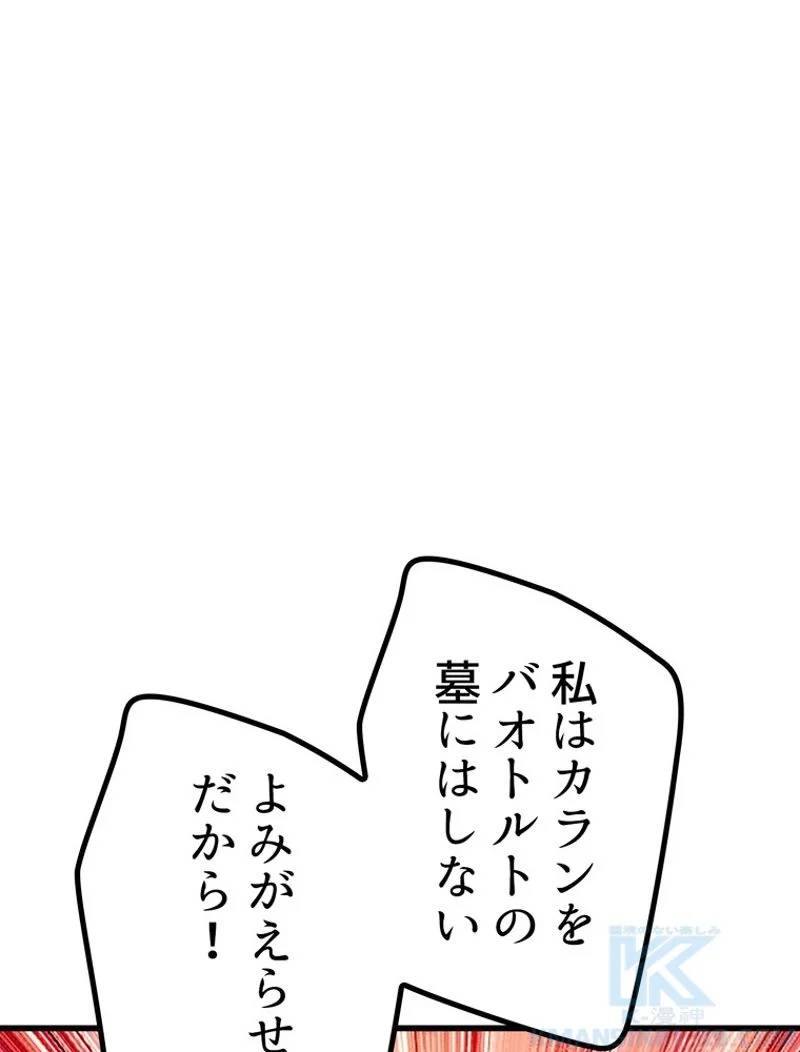 私はカランを
バオトルトの
墓にはしない
よみがえらせ
だから！
K-漫神